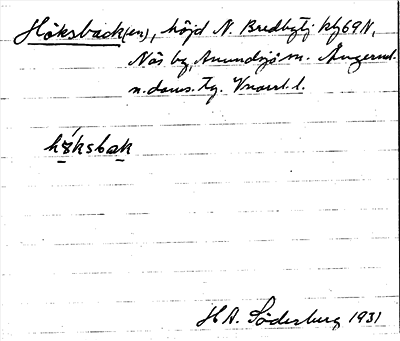 Höksback(en), höjd N. Bredbytj kbf 69 N,
Näs by, Anundsjö sn. Ångerml.
n. doms. tg. Vnorrl. l.
hö́ksbak
H A. Söderberg 1931